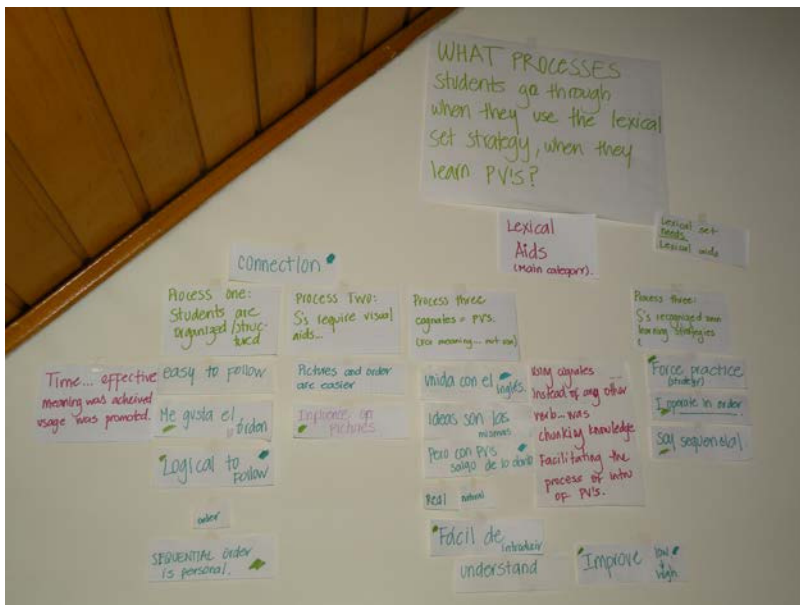 WHAT PROCESSES
students go through
when they use the lexical
set strategy, when they
learn PV'S?
Lexical
Aids
(Main category).
Lexical set
needs
Lexical aids
connection
Process one:
Students are
organized/struc-
tured
Process Two:
S's require visual
aids...
Process three
cognates = PV's.
(For meaning... not use)
Process three:
S's recognized own
learning strategies
Time... effective
meaning was acheived
usage was promoted.
easy to follow
Me gusta el
órden
Logical to
Follow
order
SEQUENTIAL order
is personal.
Pictures and order
are easier
Influence on
Pictures
unida con el inglés.
Ideas son las
mismas
Pero con PV's
salgo de lo
Real natural
Fácil de
introducir
understand
Using cognates
instead of any other
verb... was
chunking knowledge
Facilitating the
process of intro
of PV's.
Force practice
(strategy)
I operate in order
Soy sequencial
Improve low
high